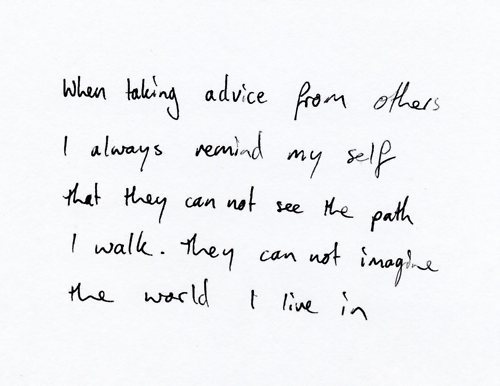 When taking advice from others
I always remind my self
that they can not see the path
I walk. They can not imagine
the world I live in